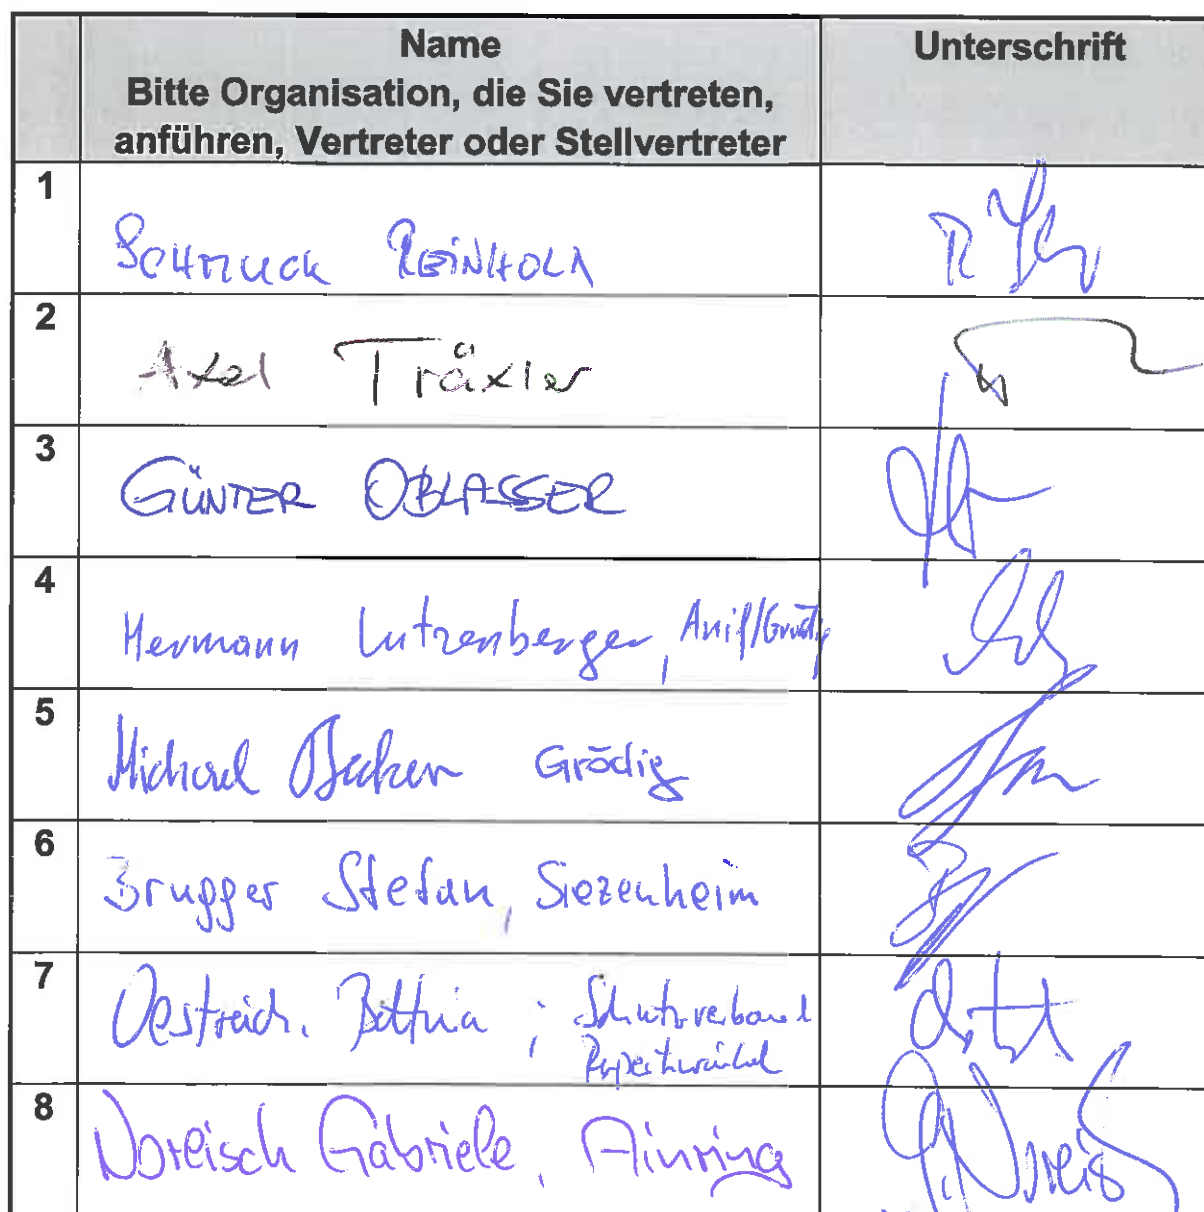 Name Unterschrift
Bitte Organisation, die Sie vertreten,
anführen, Vertreter oder Stellvertreter
1
SCHMUCK REINHOLD
2
Axel Träxler
3
GÜNTER OBLASSER
4
Hermann Lutzenberger, Anif/Grödig
5
Michael Grödig
6
Brugger Stefan, Siezenheim
7
Oestreich. Bettina ; Schutzverband
Rupertiwinkel
8
Noreisch Gabriele, Ainring